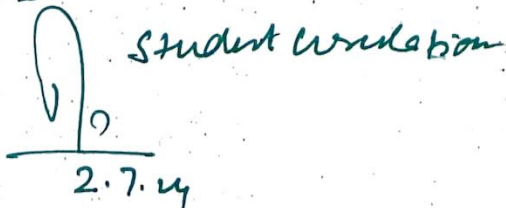 Student circulation
2.7.24